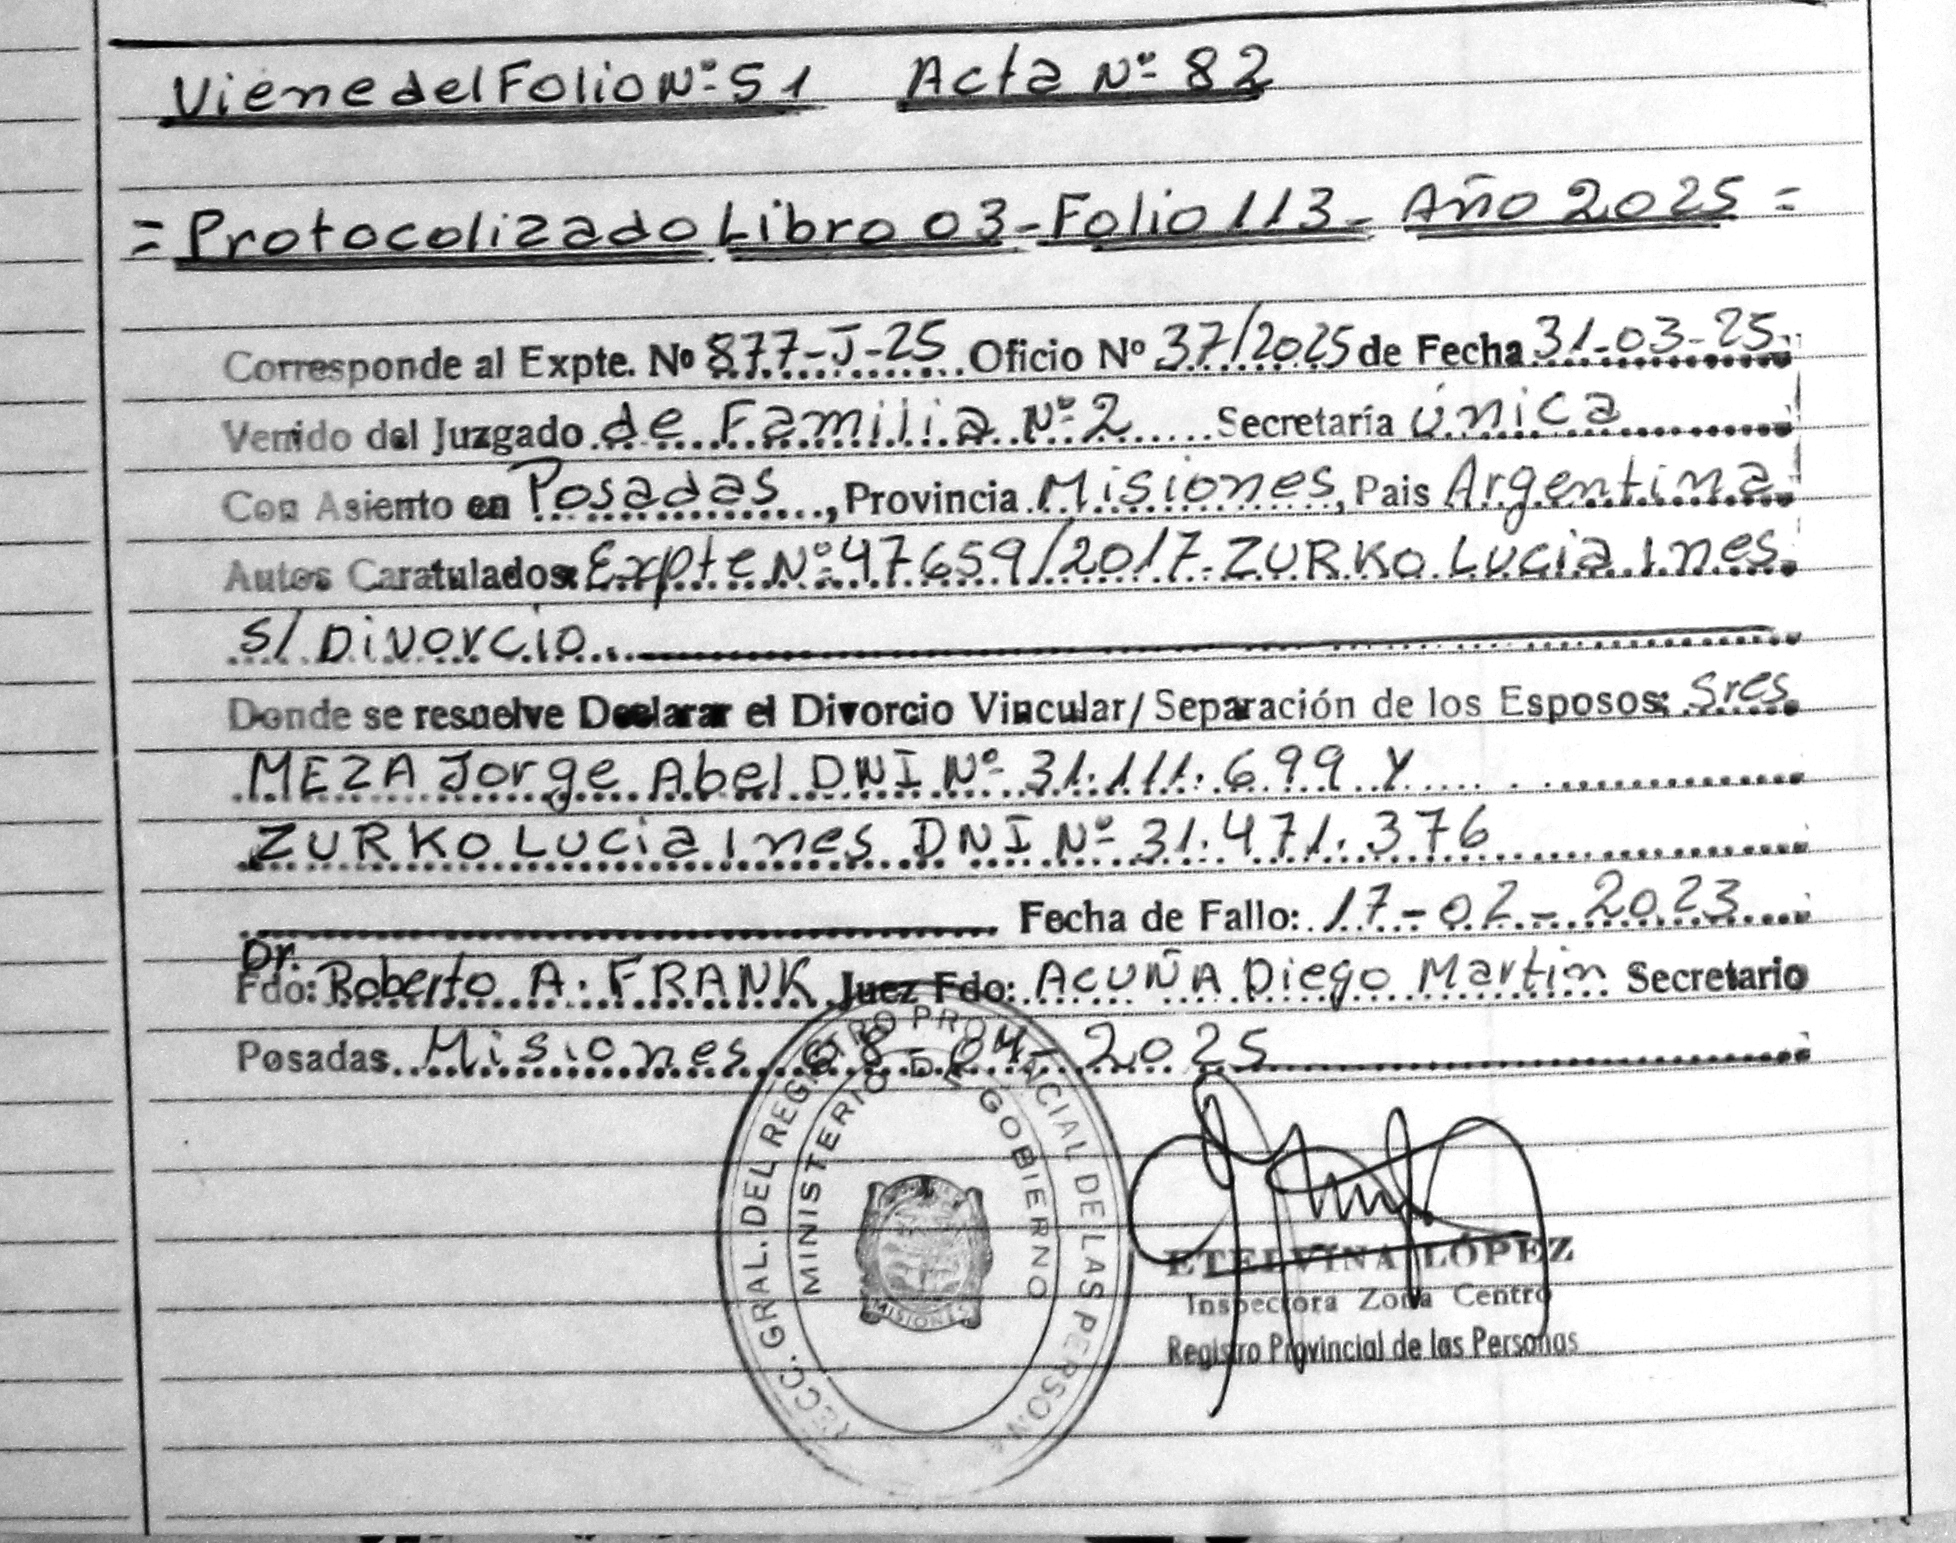 Viene del Folio Nº 51 Acta Nº 82
= Protocolizado Libro 03 - Folio 113 - Año 2025 =
Corresponde al Expte. Nº 877-J-25 Oficio Nº 37/2025 de Fecha 31-03-25
Venido del Juzgado de Familia Nº 2 Secretaría única
Con Asiento en Posadas, Provincia Misiones, Pais Argentina
Autos Caratulados: Expte Nº 47659/2017-ZURKO Lucia Ines
s/ Divorcio
Donde se resuelve Declarar el Divorcio Vincular/ Separación de los Esposos: Sres
MEZA Jorge Abel DNI Nº 31.111.699 Y
ZURKO Lucia Ines DNI Nº 31.471.376
Fecha de Fallo: 17-02-2023
Dr.
Fdo: Roberto A. FRANK Juez Fdo: ACUÑA Diego Martin Secretario
Posadas Misiones 08-04-2025
RECC. GRAL. DEL REGISTRO PROVINCIAL DE LAS PERSON
MINISTERIO DE GOBIERNO
MISIONES
ETELVINA LÓPEZ
Inspectora Zona Centro
Registro Provincial de las Personas